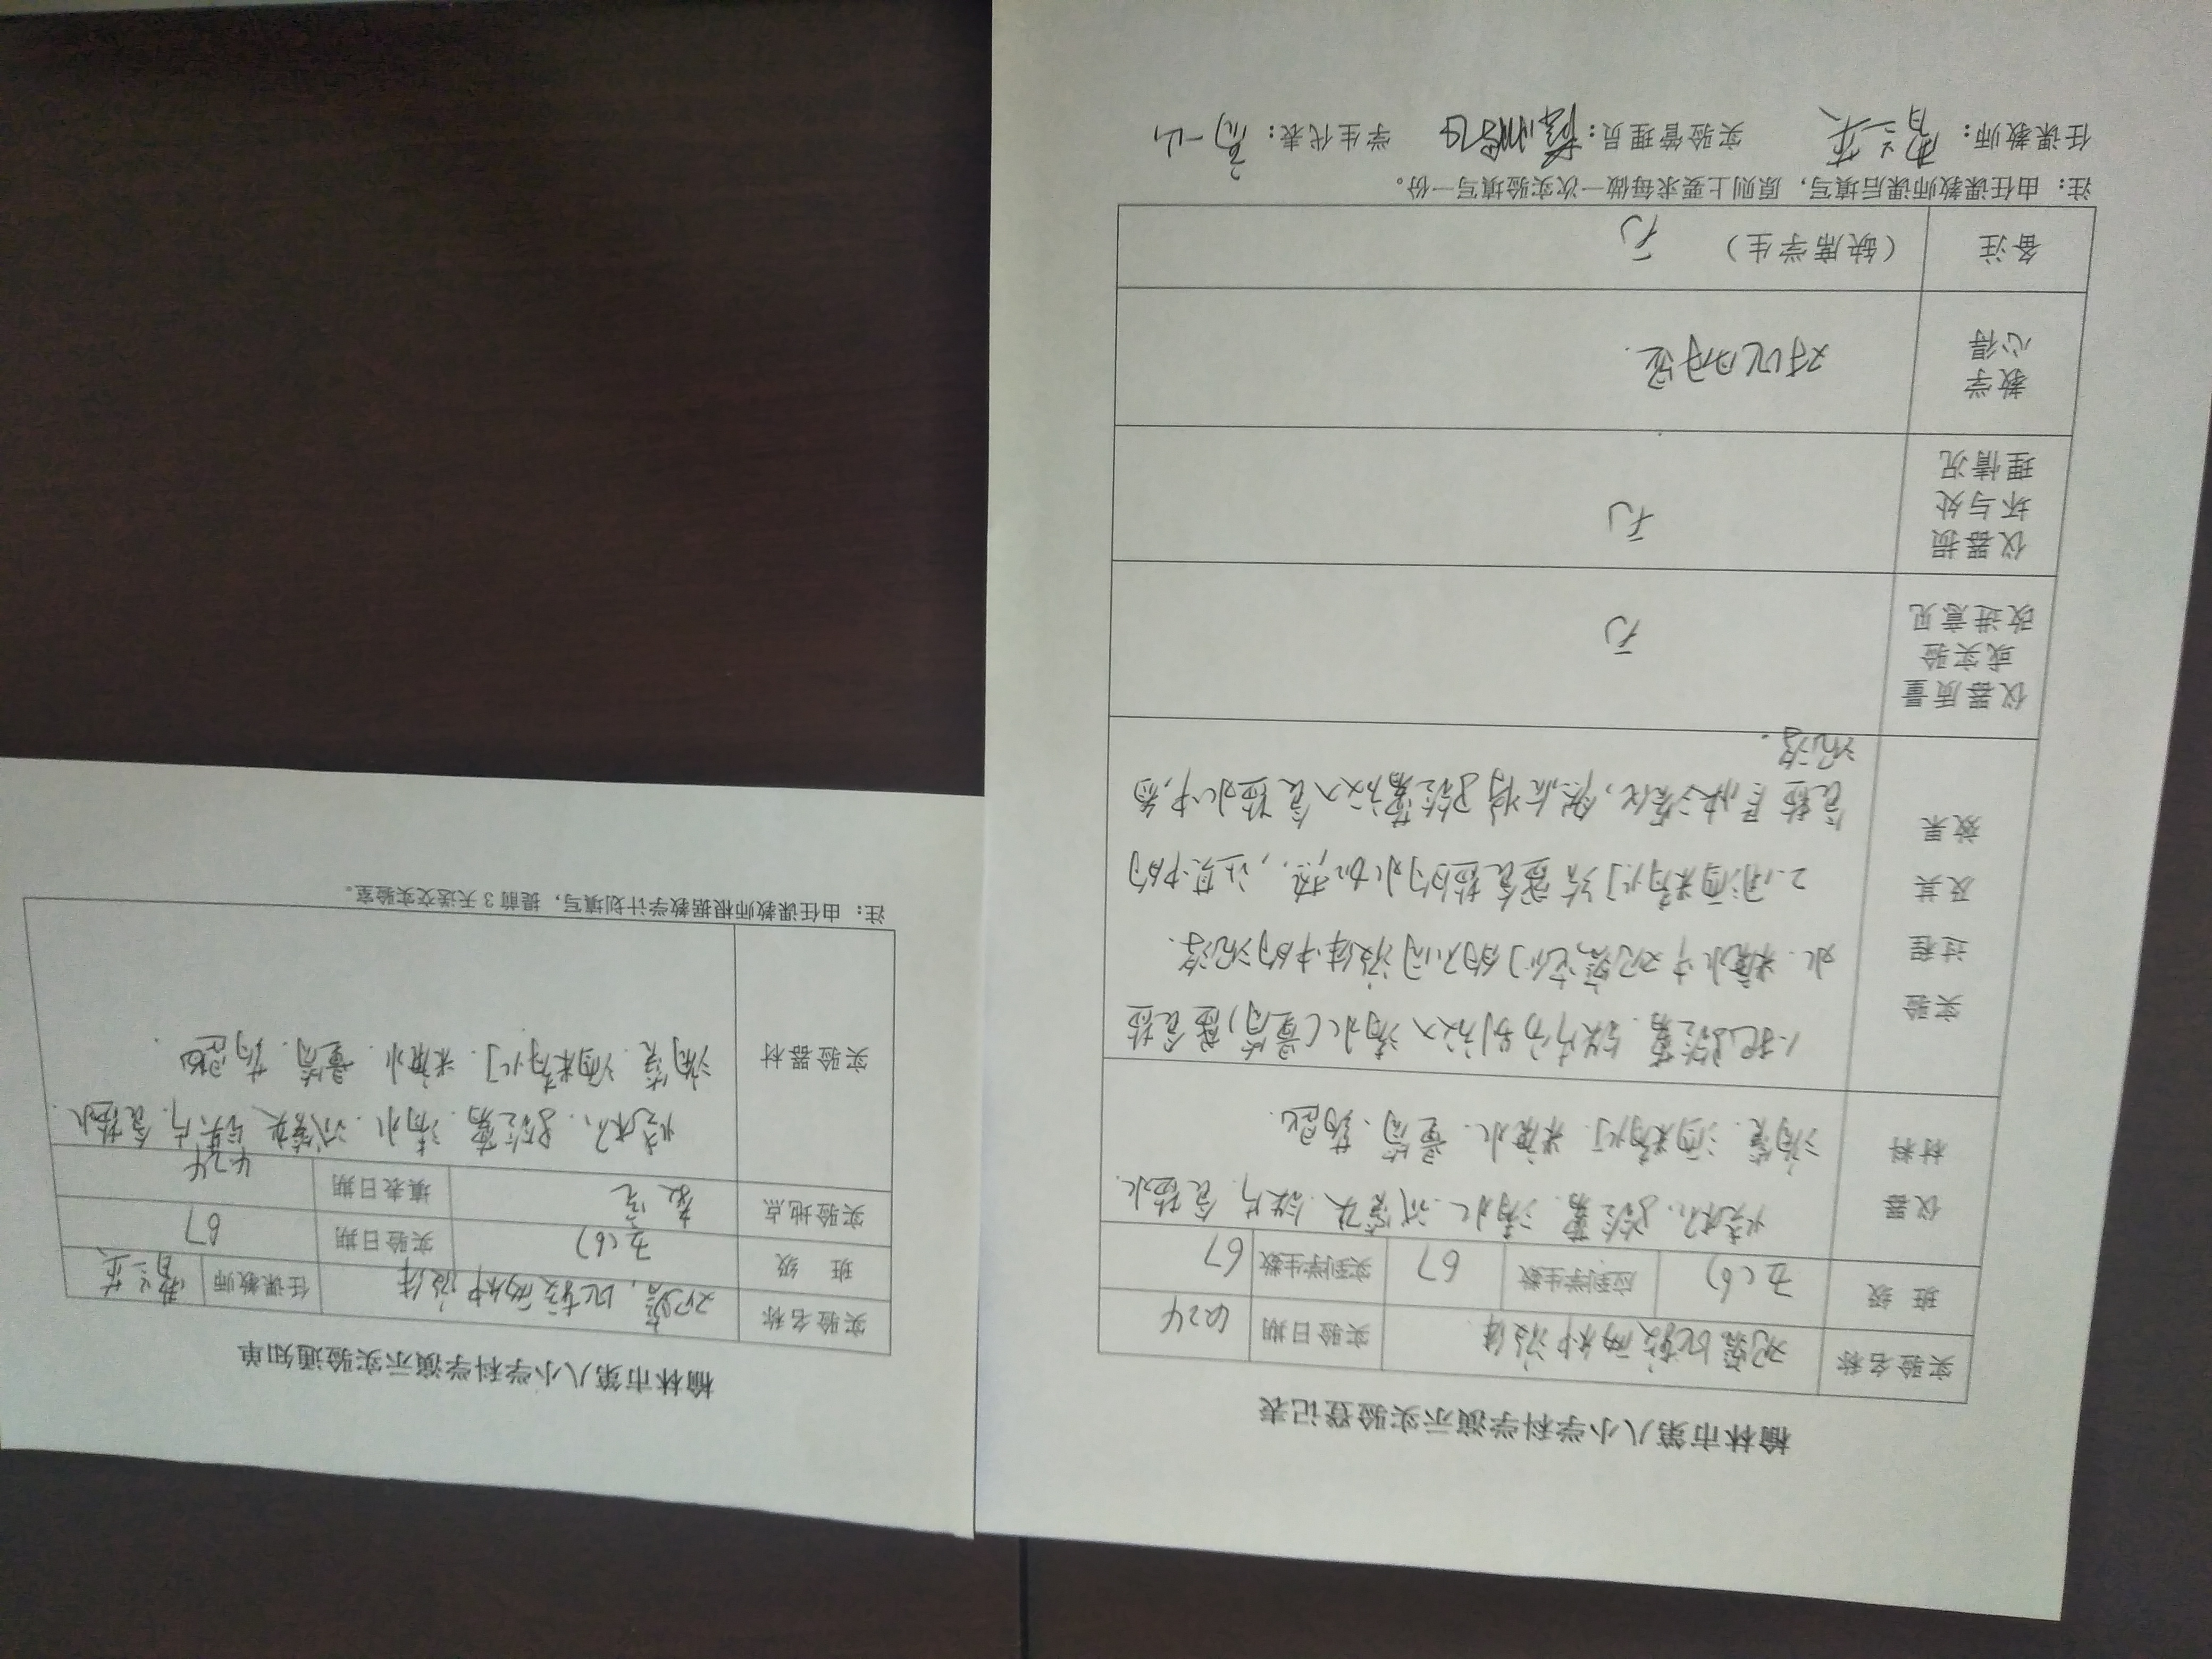 榆林市第八小学科学演示实验登记表
实验名称 观察比较两种液体 实验日期 4.24
班 级 五(6) 应到学生数 67 实到学生数 67
仪器材料 烧杯、马铃薯、清水、试管夹、铁片、食盐水、
滴管、酒精灯、糖水、量筒、
实验过程及其效果 1.把马铃薯、铁片分别放入清水(量筒)食盐
水、糖水中观察它们的不同液体中的沉浮.
2.用酒精灯给食盐的水加热,让其中的
食盐尽快溶化,然后将马铃薯放入食盐水中,看
沉浮.
仪器质量或实验改进意见 无
仪器损坏与处理情况 无
教学心得 对比
备注 (缺席学生) 无
注：由任课教师课后填写，原则上要求每做一次实验填写一份。
任课教师： 实验管理员： 学生代表：
榆林市第八小学科学演示实验通知单
实验名称 观察,比较两种液体 任课教师
班 级 五(6) 实验日期 67
实验地点 教室 填表日期 4.24
实验器材 烧杯、马铃薯、清水、试管夹、铁片、食盐水
滴管、酒精灯、糖水、量筒、
注：由任课教师根据教学计划填写，提前 3 天送交实验室。